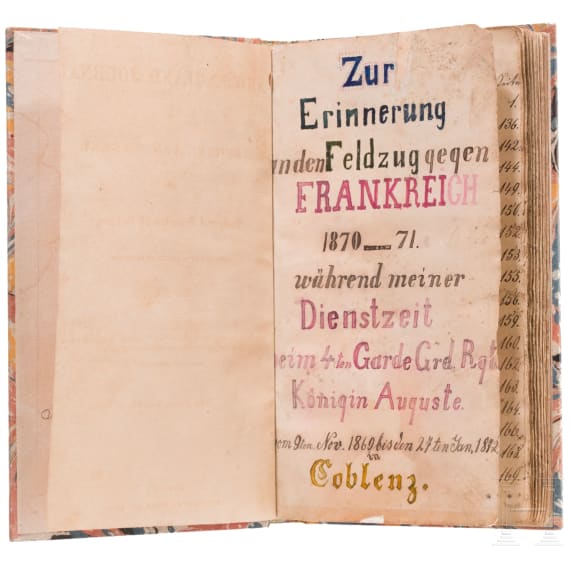 Zur
Erinnerung
an den Feldzug gegen
FRANKREICH
1870 — 71.
während meiner
Dienstzeit
beim 4ten Garde Grd. Rgt.
Königin Auguste.
vom 9ten Nov. 1869 bis den 27ten Jan, 1872
in
Coblenz.
Seite
1.
136.
142.
144.
149.
150.
152.
153.
155.
156.
159.
160.
162.
163.
164.
166.
168.
169.